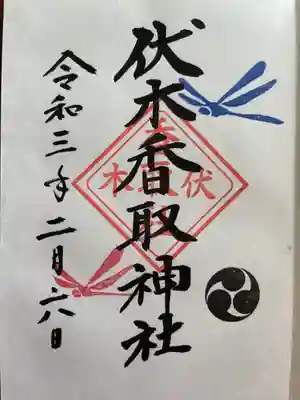 伏木香取神社
令和三年二月六日